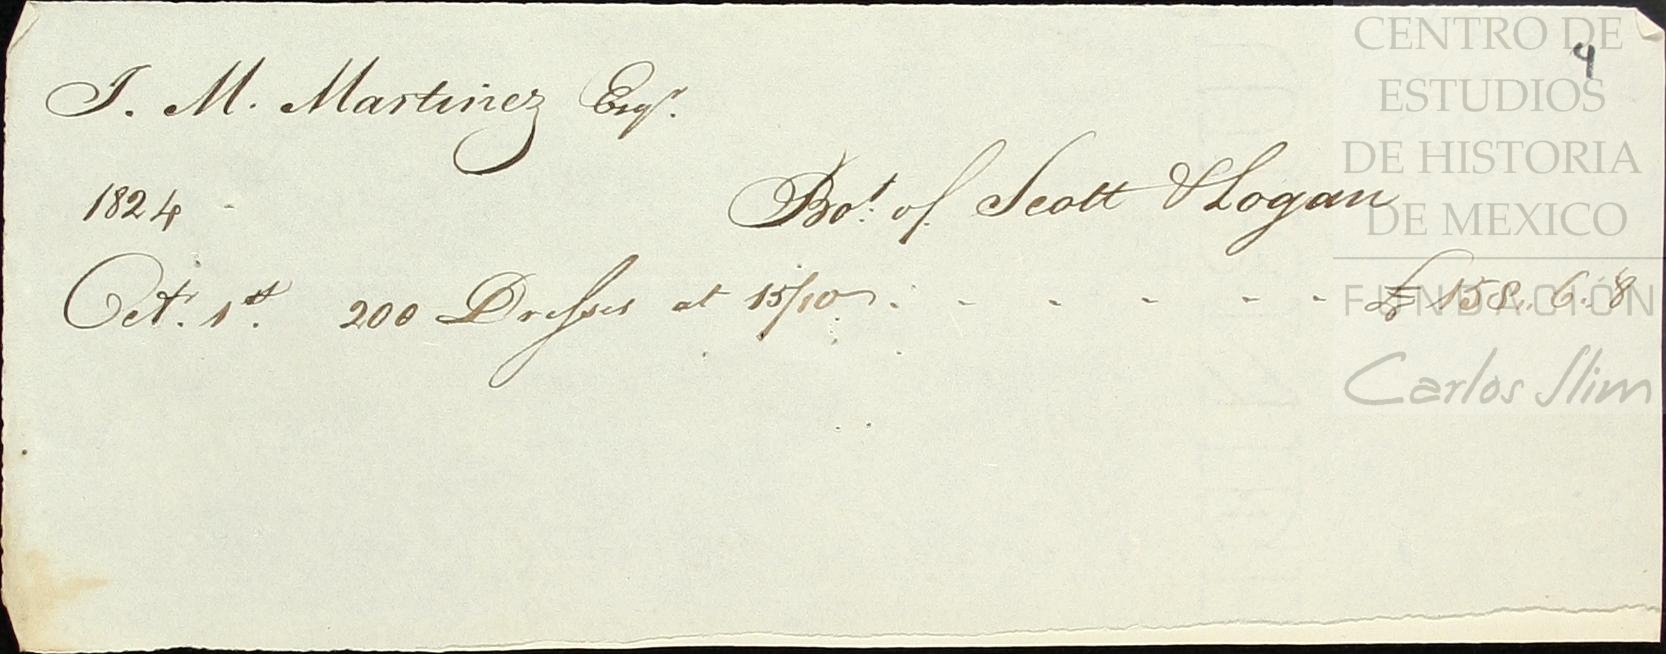 CENTRO DE
ESTUDIOS
DE HISTORIA
DE MEXICO
FUNDACIÓN
Carlos Slim
4
J. M. Martinez Esqr.
1824 -
Bot. of Scott & Logan
Octr. 1st. 200 Dresses at 15/10 . - - - - - £ 158. 6. 8